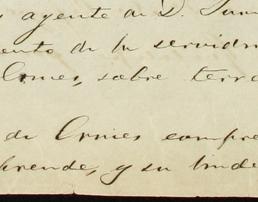 agente de D. Juan
ento de la servidu
Ormes, sobre terre
de Ormes compre
prende, y su linde